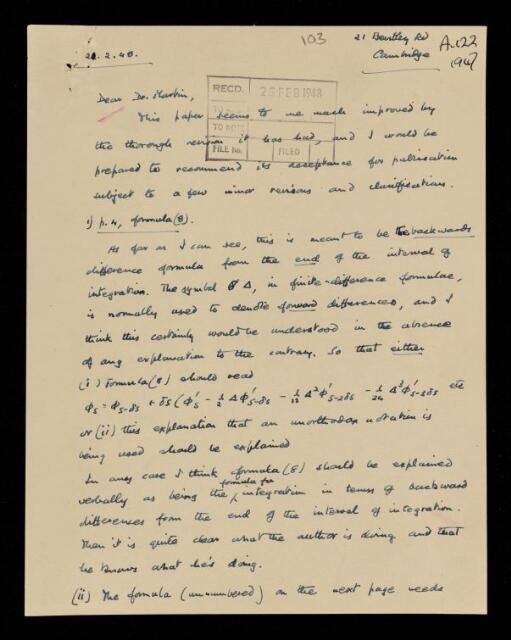 103
21 Bentley Rd
Cambridge
A.122
1947
21.2.48.
RECD. 25 FEB 1948
TO NOTE
FILE No. FILED
Dear Dr. Martin,
This paper seems to me much improved by
the thorough revision it has had, and I would be
prepared to recommend its acceptance for publication
subject to a few minor revisions and clarifications.
1) p.4, formula (8).
As far as I can see, this is meant to be the backwards
difference formula from the end of the interval of
integration. The symbol Δ, in finite-difference formulae,
is normally used to denote forward differences, and I
think this certainly would be understood in the absence
of any explanation to the contrary. So that either
(i) Formula (8) should read
ϕs = ϕs-δs + δs (ϕ's - ½ Δϕ's-δs - 1/12 Δ²ϕ's-2δs - 1/24 Δ³ϕ's-3δs etc
or (ii) this explanation that an unorthodox notation is
being used should be explained
In any case I think formula (8) should be explained
verbally as being the formula for integration in terms of backward
differences from the end of the interval of integration.
Then it is quite clear what the author is doing and that
he knows what he's doing.
(ii) The formula (unnumbered) on the next page needs